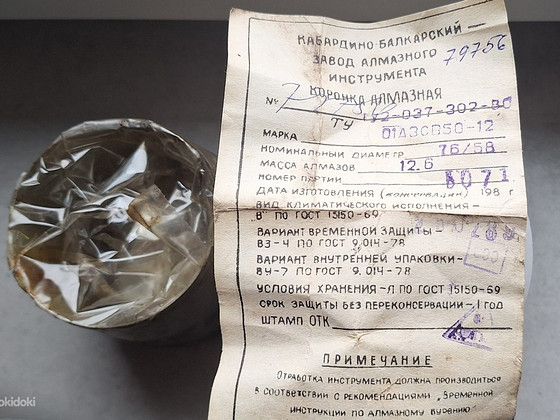 КАБАРДИНО-БАЛКАРСКИЙ
ЗАВОД АЛМАЗНОГО
ИНСТРУМЕНТА
79756
КОРОНКА АЛМАЗНАЯ
№
ТУ 2-037-302-80
МАРКА 01А3СВ50-12
НОМИНАЛЬНЫЙ ДИАМЕТР 76/58
МАССА АЛМАЗОВ 12.6
НОМЕР ПАРТИИ 071
ДАТА ИЗГОТОВЛЕНИЯ (консервации) 198 г
ВИД КЛИМАТИЧЕСКОГО ИСПОЛНЕНИЯ-
В ПО ГОСТ 15150-69
ВАРИАНТ ВРЕМЕННОЙ ЗАЩИТЫ-
ВЗ-4 ПО ГОСТ 9.014-78
ВАРИАНТ ВНУТРЕННЕЙ УПАКОВКИ-
ВУ-7 ПО ГОСТ 9.014-78
УСЛОВИЯ ХРАНЕНИЯ-Л ПО ГОСТ 15150-69
СРОК ЗАЩИТЫ БЕЗ ПЕРЕКОНСЕРВАЦИИ-1 ГОД
ШТАМП ОТК
ПРИМЕЧАНИЕ
ОТРАБОТКА ИНСТРУМЕНТА ДОЛЖНА ПРОИЗВОДИТЬСЯ
В СООТВЕТСТВИИ С РЕКОМЕНДАЦИЯМИ „ВРЕМЕННОЙ
ИНСТРУКЦИИ ПО АЛМАЗНОМУ БУРЕНИЮ
okidoki